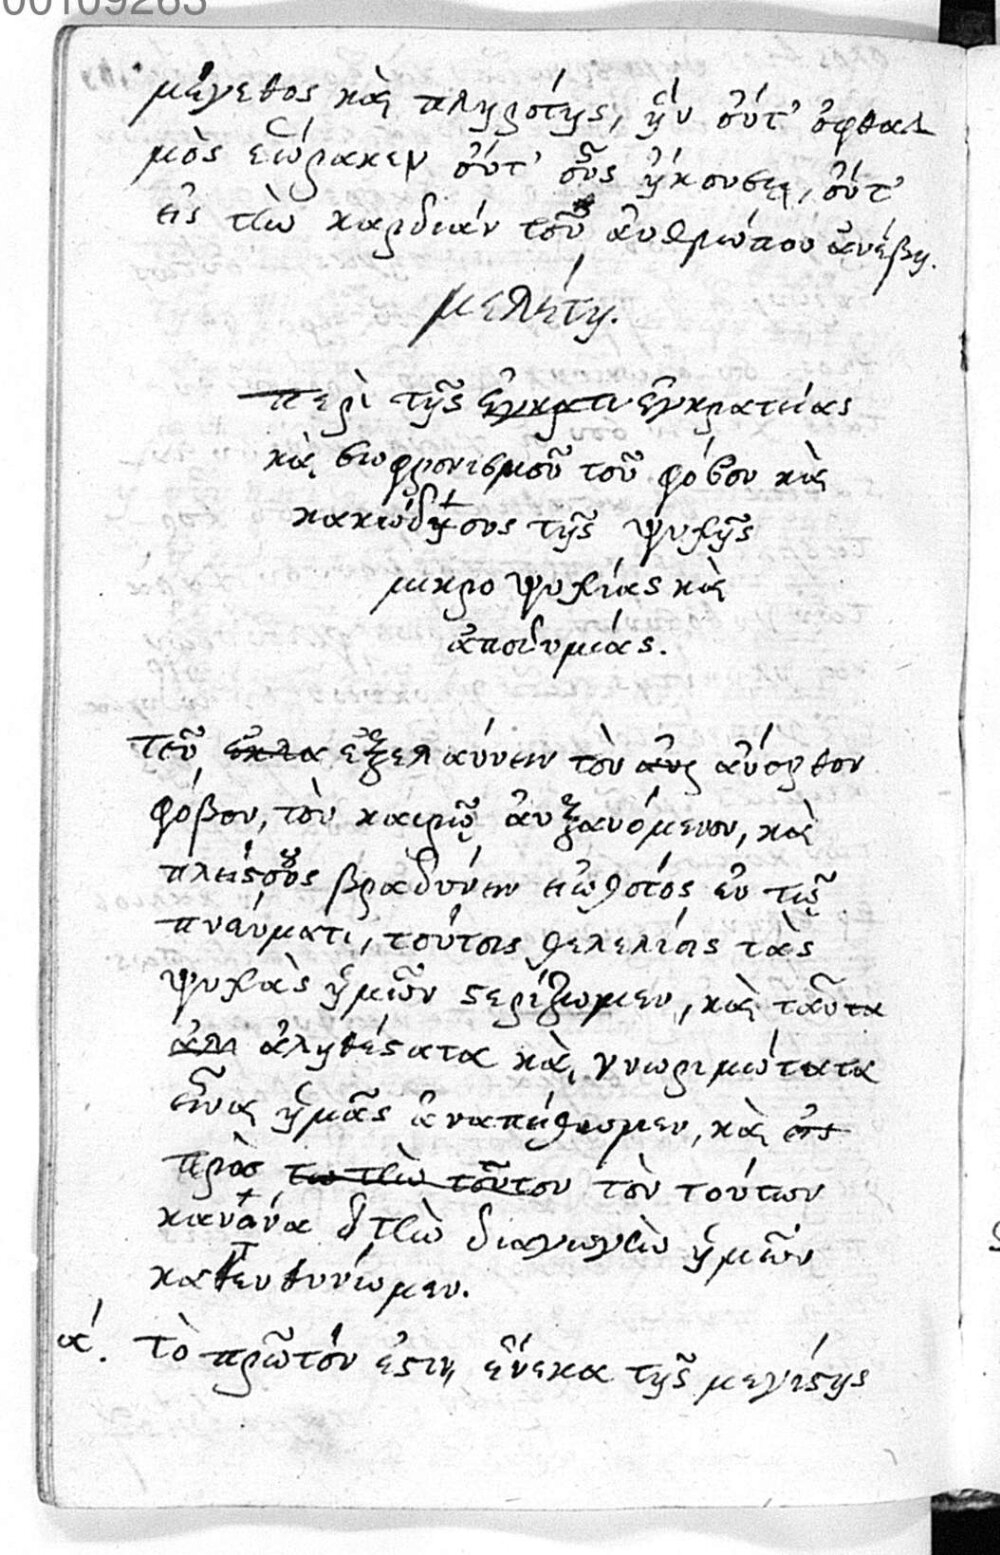 00109263
μέγεθος καὶ πληρότης, ἣν οὔτ' ὀφθαλ
μὸς εώρακεν οὔτ' οὖς ἤκουσεν, οὔτ'
εἰς τὴν καρδιάν τοῦ ἀνθρώπου ἀνέβη.
μελέτη.
περὶ τῆς εγκρατι εγκρατείας
καὶ σωφρονισμοῦ τοῦ φόβου καὶ
κακώδους τῆς ψυχῆς
μικροψυχίας καὶ
ἀποθυμιάς.
Τοῦ εκλα ἐξελαύνειν τὸν ανρ ἀύορθον
φόβον, τὸν καιρῷ ἀυξανόμενον, καὶ
πλείστους βραδυνέιν ειωθοτός εν τῷ
πνεύματι, τούτοις θελελίοις τὰς
ψυχὰς ἡμῶν στερίζωμεν, καὶ ταῦτα
ἀλη ἀληθέστατα καὶ γνωριμώτατα
εἶναι ἡμᾶς ἀναπείθωμεν, καὶ εἰς
πρὸς τω τὴν τοῦτον τὸν τούτων
κανάνα τὴν διαγωγὴν ἡμῶν
κατευθυνίωμεν.
ά. τὸ πρῶτόν ἐστιν, ἕνεκα τῆς μεγίστης